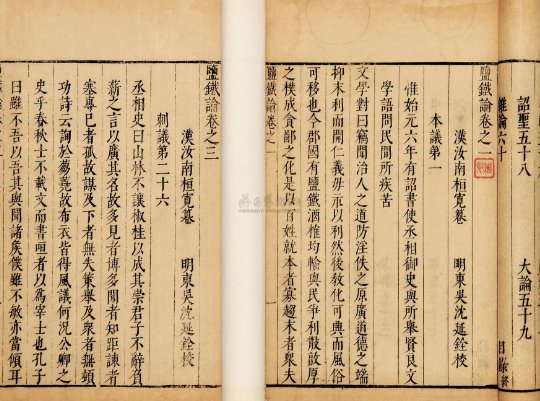 詔聖五十八 大論五十九
雜論六十 目錄終
鹽鐵論卷之一
漢汝南桓寬纂 明東吳沈延銓校
本議第一
惟始元六年有詔書使丞相御史與所舉賢良文
學語問民間所疾苦
文學對曰竊聞治人之道防淫佚之原廣道德之端
抑末利而開仁義毋示以利然後教化可興而風俗
可移也今郡國有鹽鐵酒榷均輸與民爭利散敦厚
之樸成貪鄙之化是以百姓就本者寡趨末者衆夫
鹽鐵論卷之一
鹽鐵論卷之三
漢汝南桓寬纂 明東吳沈延銓校
刺議第二十六
丞相史曰山林不讓椒桂以成其崇君子不辭負
薪之言以廣其名故多見者博多聞者知距諫者
塞專己者孤故謀及下者無失策舉及衆者無頓
功詩云詢於芻蕘故布衣皆得風議何況公卿之
史乎春秋士不載文而書咺者以爲宰士也孔子
曰雖不吾以吾其與聞諸矦僕雖不敏亦當傾耳